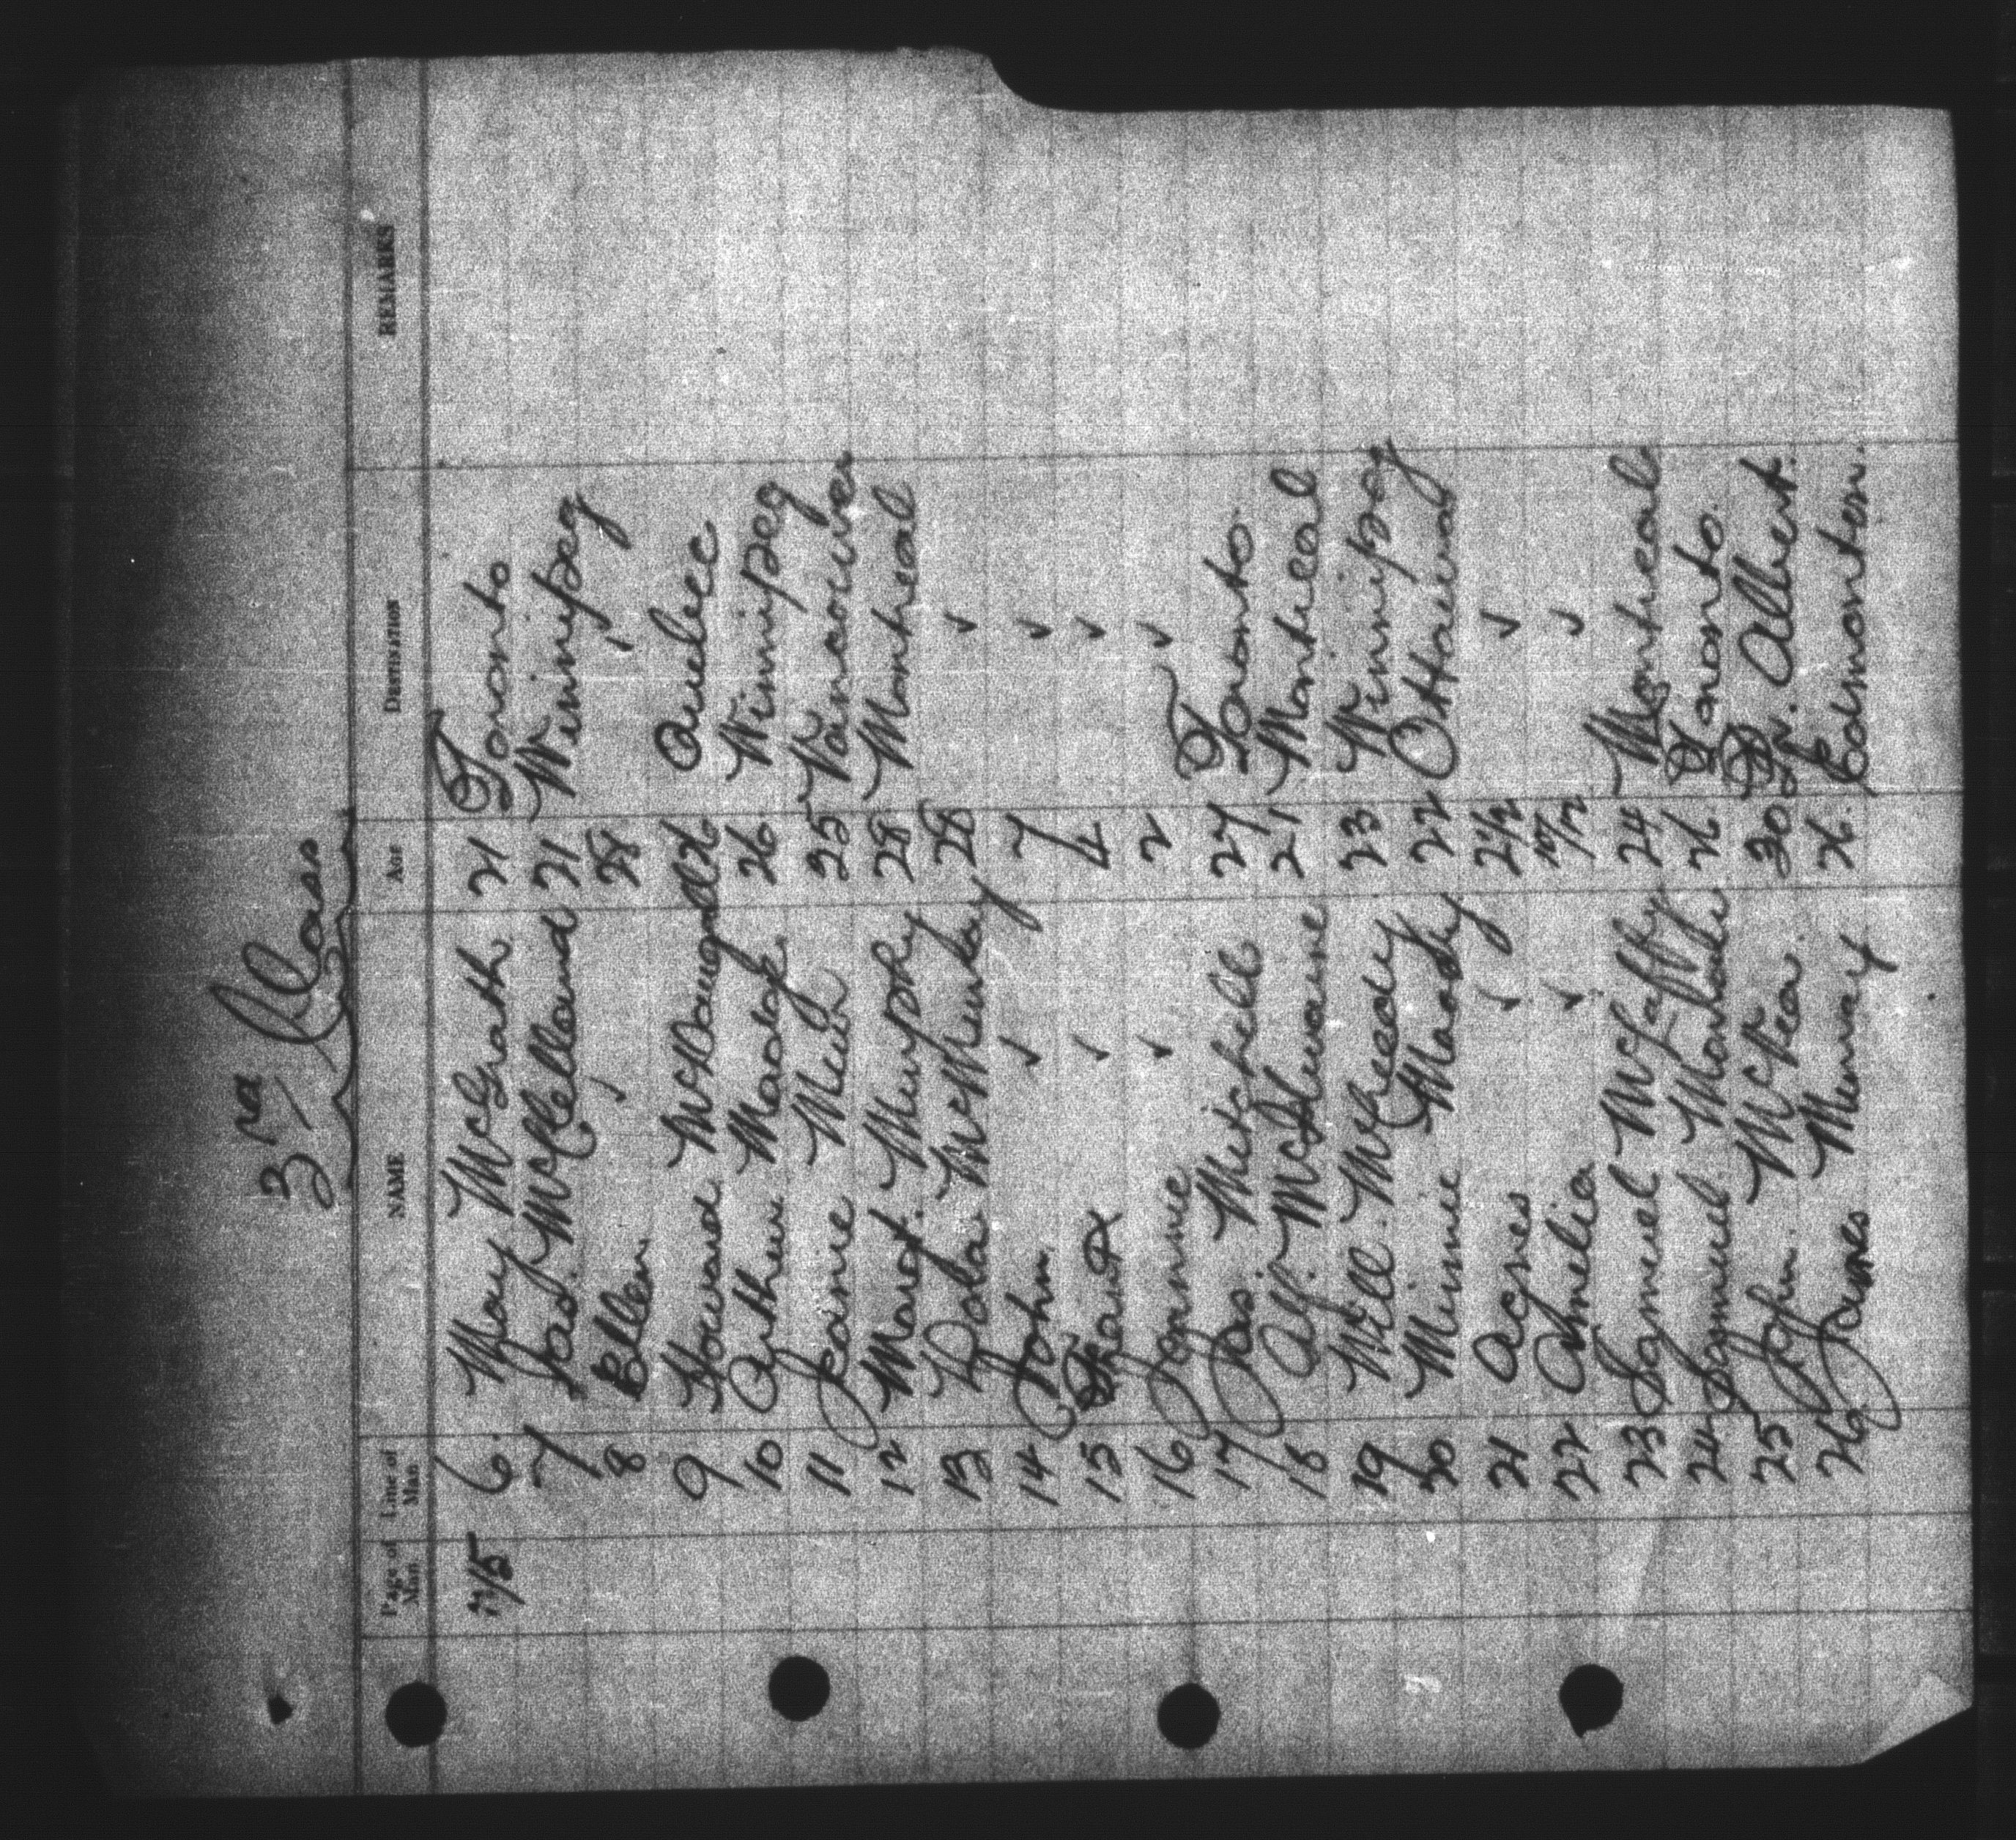 3rd Class
Page of Man. Line of Man. NAME AGE DESTINATION REMARKS
6 May McGrath 21 Toronto
7 Jas. McClelland 21 Winnipeg
8 Ellen ✓ 28 ✓
9 Howard 26 Quebec
10 Arthur Madge 26 Winnipeg
11 Jeanie Muir 25 Vancouver
12 Margt. Murphy 28 Montreal
13 28 ✓
14 John ✓ 7 ✓
15 ✓ 4 ✓
16 Jannie ✓ 2 ✓
17 Jas. Mitchell 27 Toronto.
18 Alf. McIlwaine 21 Montreal
19 Will. McCready 23 Winnipeg
20 Minnie 22 Ottawa
21 Agnes ✓ 2½ ✓
22 Amelia ✓ 10/12 ✓
23 Samuel McCaffry 24 Montreal
24 Samuel 26 Toronto.
25 John. McVea. 30 Albert.
26 James Murray 26. Edmonton.